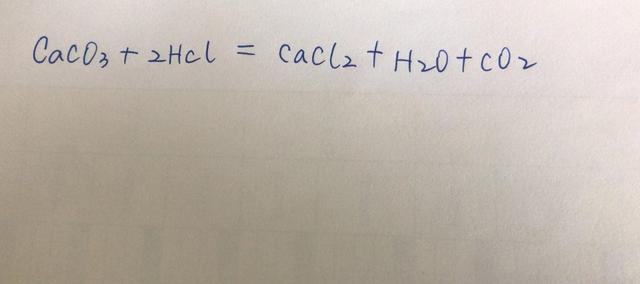 CaCO₃ + 2HCl = CaCl₂ + H₂O + CO₂